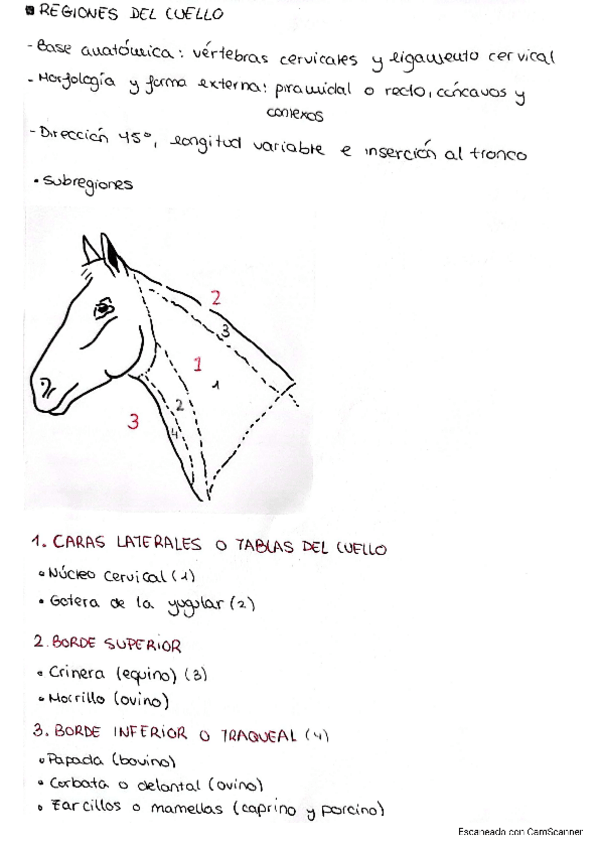 REGIONES DEL CUELLO
- Base anatómica: vértebras cervicales y ligamento cervical
- Morfología y forma externa: piramidal o recto, cóncavos y
convexos
- Dirección 45º, longitud variable e inserción al tronco
• Subregiones
2
3
1
1
2
3
4
1. CARAS LATERALES O TABLAS DEL CUELLO
• Núcleo cervical (1)
• Gotera de la yugular (2)
2. BORDE SUPERIOR
• Crinera (equino) (3)
• Morrillo (ovino)
3. BORDE INFERIOR O TRAQUEAL (4)
• Papada (bovino)
• Corbata o delantal (ovino)
• Zarcillos o mamellas (caprino y porcino)
Escaneado con CamScanner